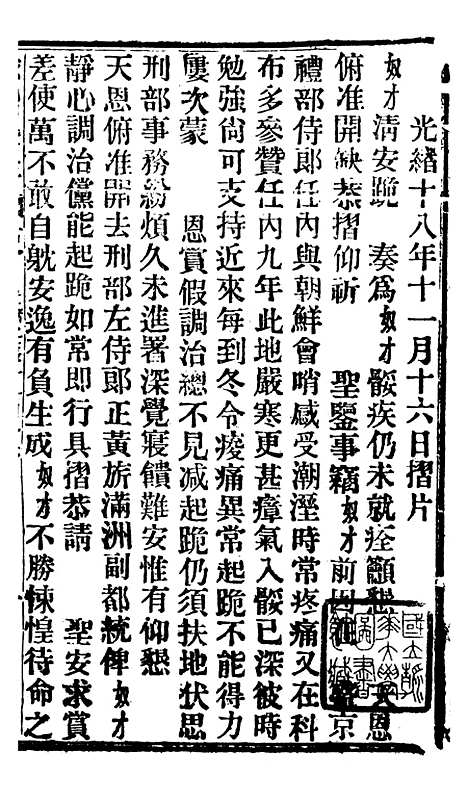 光緒十八年十一月十六日摺片
奴才清安跪 奏爲奴才骽疾仍未就痊籲懇 天恩
俯准開缺恭摺仰祈 聖鑒事竊奴才前因 京
禮部侍郎任內與朝鮮會哨感受潮溼時常疼痛又在科
布多參贊任內九年此地嚴寒更甚瘴氣入骽已深彼時
勉強尙可支持近來每到冬令痠痛異常起跪不能得力
屢次蒙 恩賞假調治總不見減起跪仍須扶地伏思
刑部事務紛煩久未進署深覺寢饋難安惟有仰懇
天恩俯准開去刑部左侍郞正黃旂滿洲副都統俾奴才
靜心調治儻能起跪如常即行具摺恭請 聖安求賞
差使萬不敢自躭安逸有負生成奴才不勝悚惶待命之